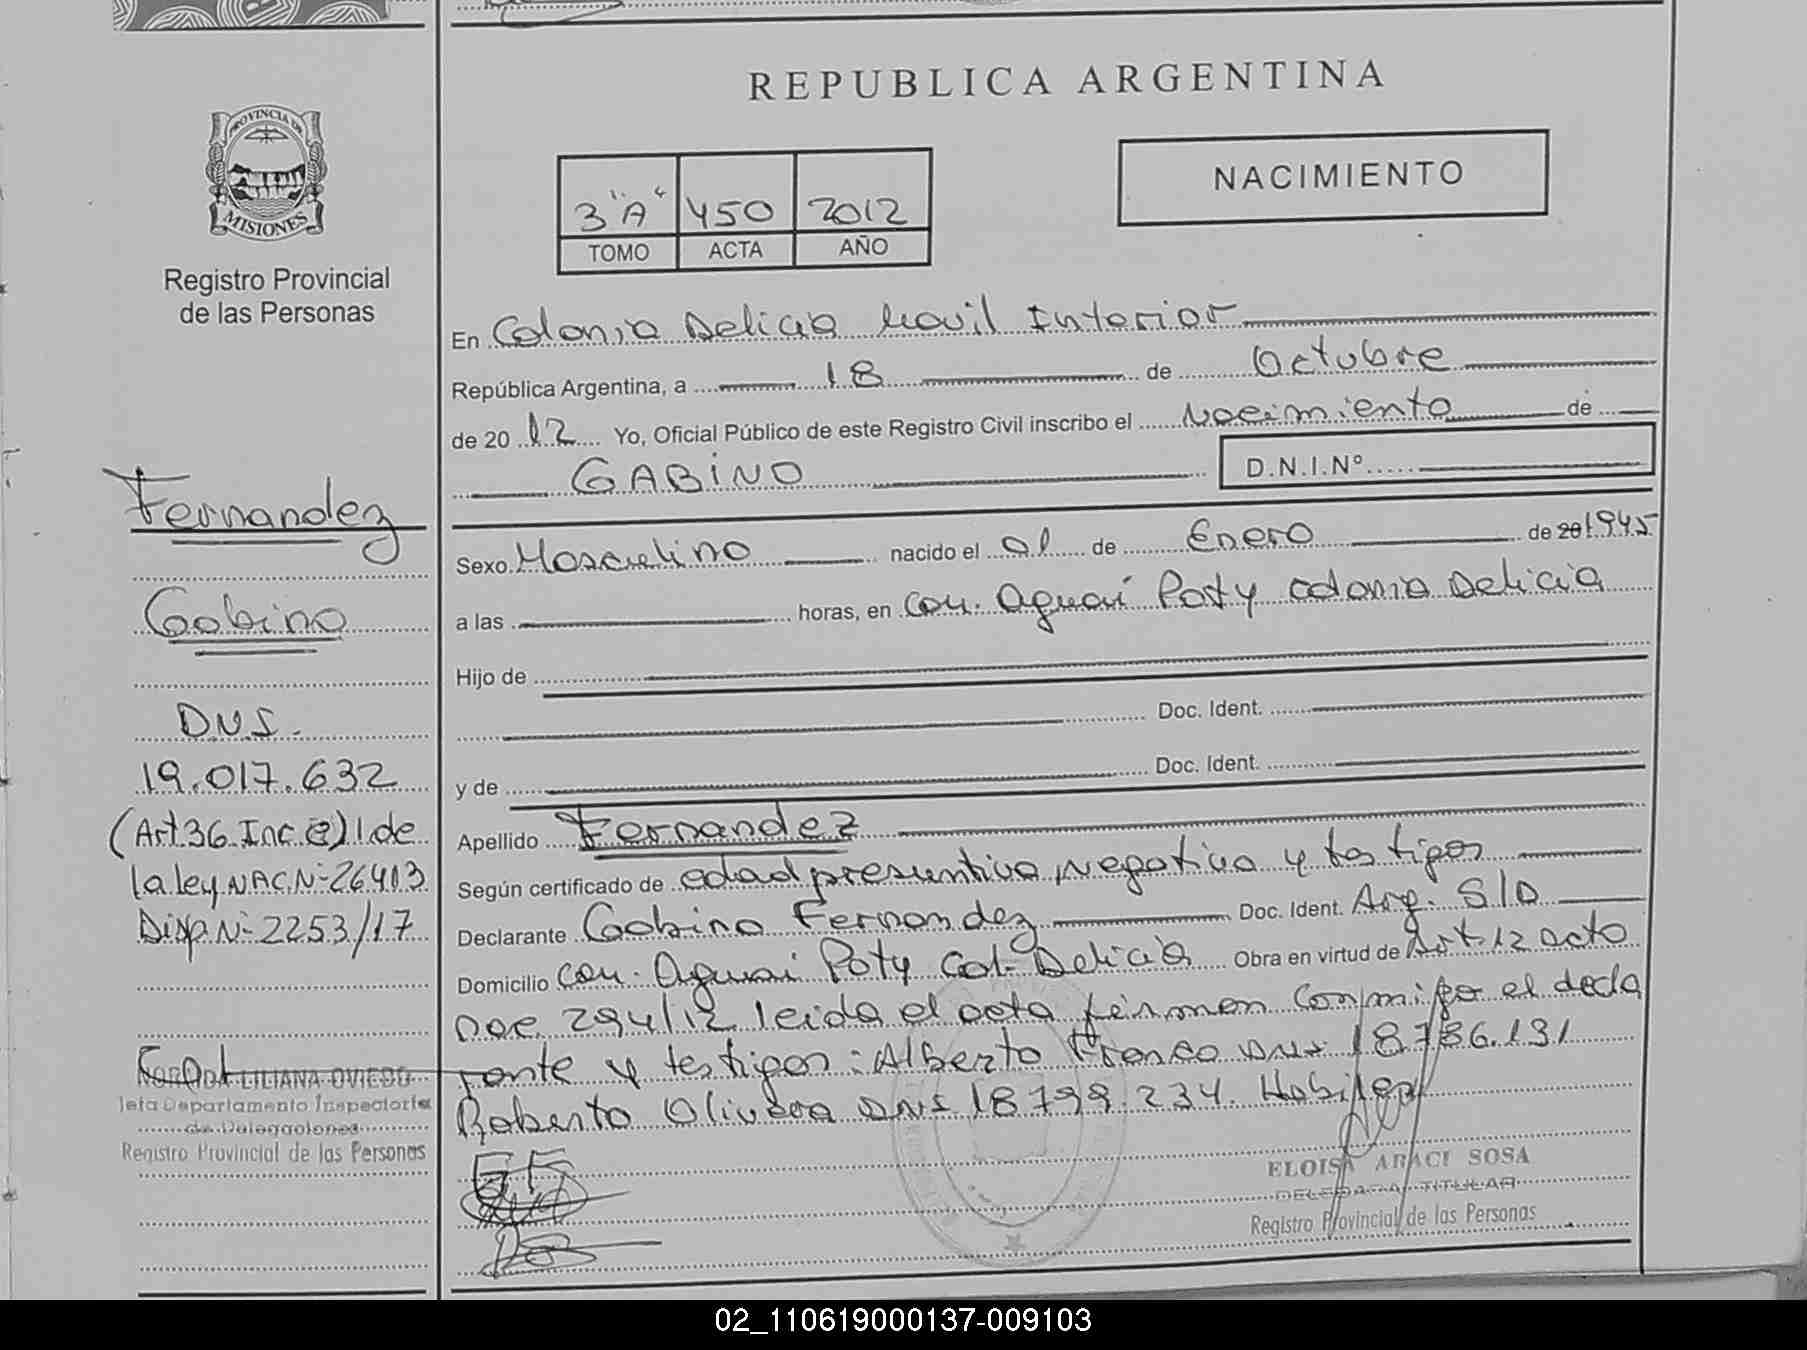 REPUBLICA ARGENTINA
PROVINCIA DE
MISIONES
Registro Provincial
de las Personas
3 "A" 450 2012
TOMO ACTA AÑO
NACIMIENTO
En Colonia Delicia Movil Interior
República Argentina, a 18 de Octubre
de 20 12 Yo, Oficial Público de este Registro Civil inscribo el Nacimiento de
GABINO D.N.I.Nº
Sexo Masculino nacido el 01 de Enero de 20 1945
a las horas, en Com. Aguai Poty Colonia Delicia
Hijo de
Doc. Ident.
y de Doc. Ident.
Apellido Fernandez
Según certificado de edad presuntiva, negativa y testigos
Declarante Gabino Fernandez Doc. Ident. Arg. S/D
Domicilio Com. Aguai Poty Col. Delicia Obra en virtud de Art. 12 acto
294/12 leida el acta firman conmigo el decla
rante y testigos: Alberto Franco DNI 18.786.131
Roberto Olivera DNI 18799.234. Habiles
Fernandez
Gabino
DNI.
19.017.632
(Art.36 Inc. e) 1. de
la ley NAC. Nº 26413
Disp. Nº 2253/17
LILIANA OVIEDO
Jefa Departamento Inspectoria
de Delegaciones
Registro Provincial de las Personas
ELOISA ARACI SOSA
DELEGADA TITULAR
Registro Provincial de las Personas
02_110619000137-009103